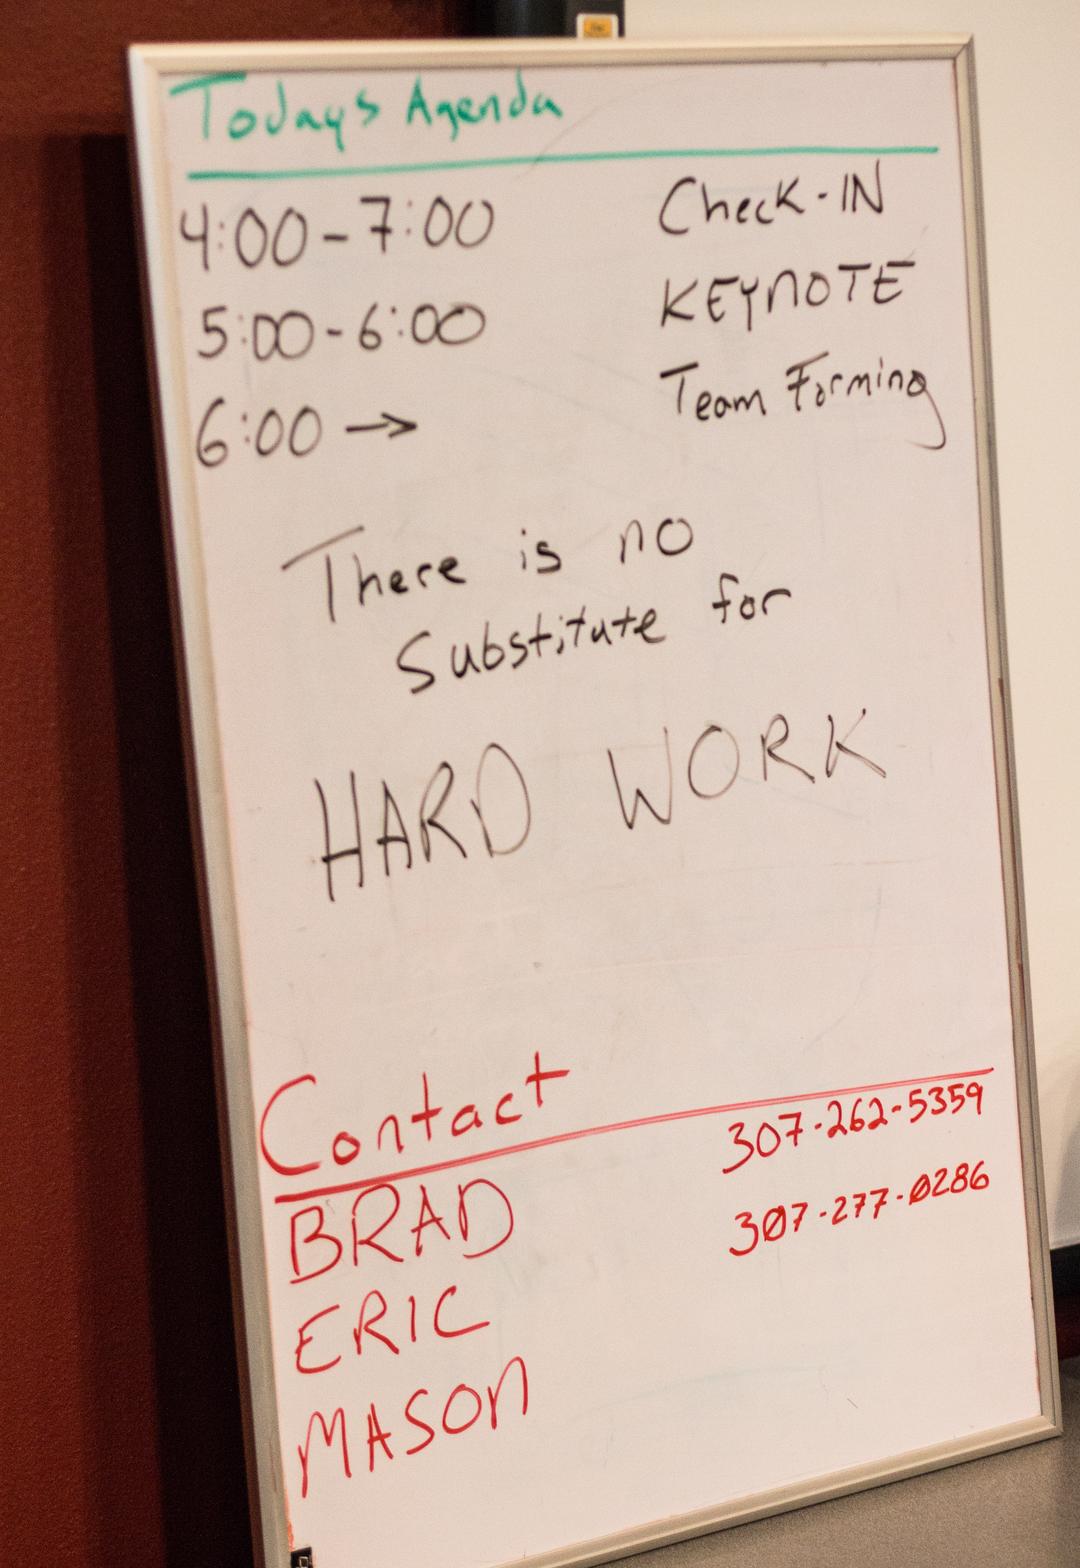 Todays Agenda
4:00-7:00 Check-IN
5:00-6:00 KEYNOTE
6:00 → Team Forming
There is no
Substitute for
HARD WORK
Contact
BRAD 307-262-5359
ERIC 307-277-0286
MASON